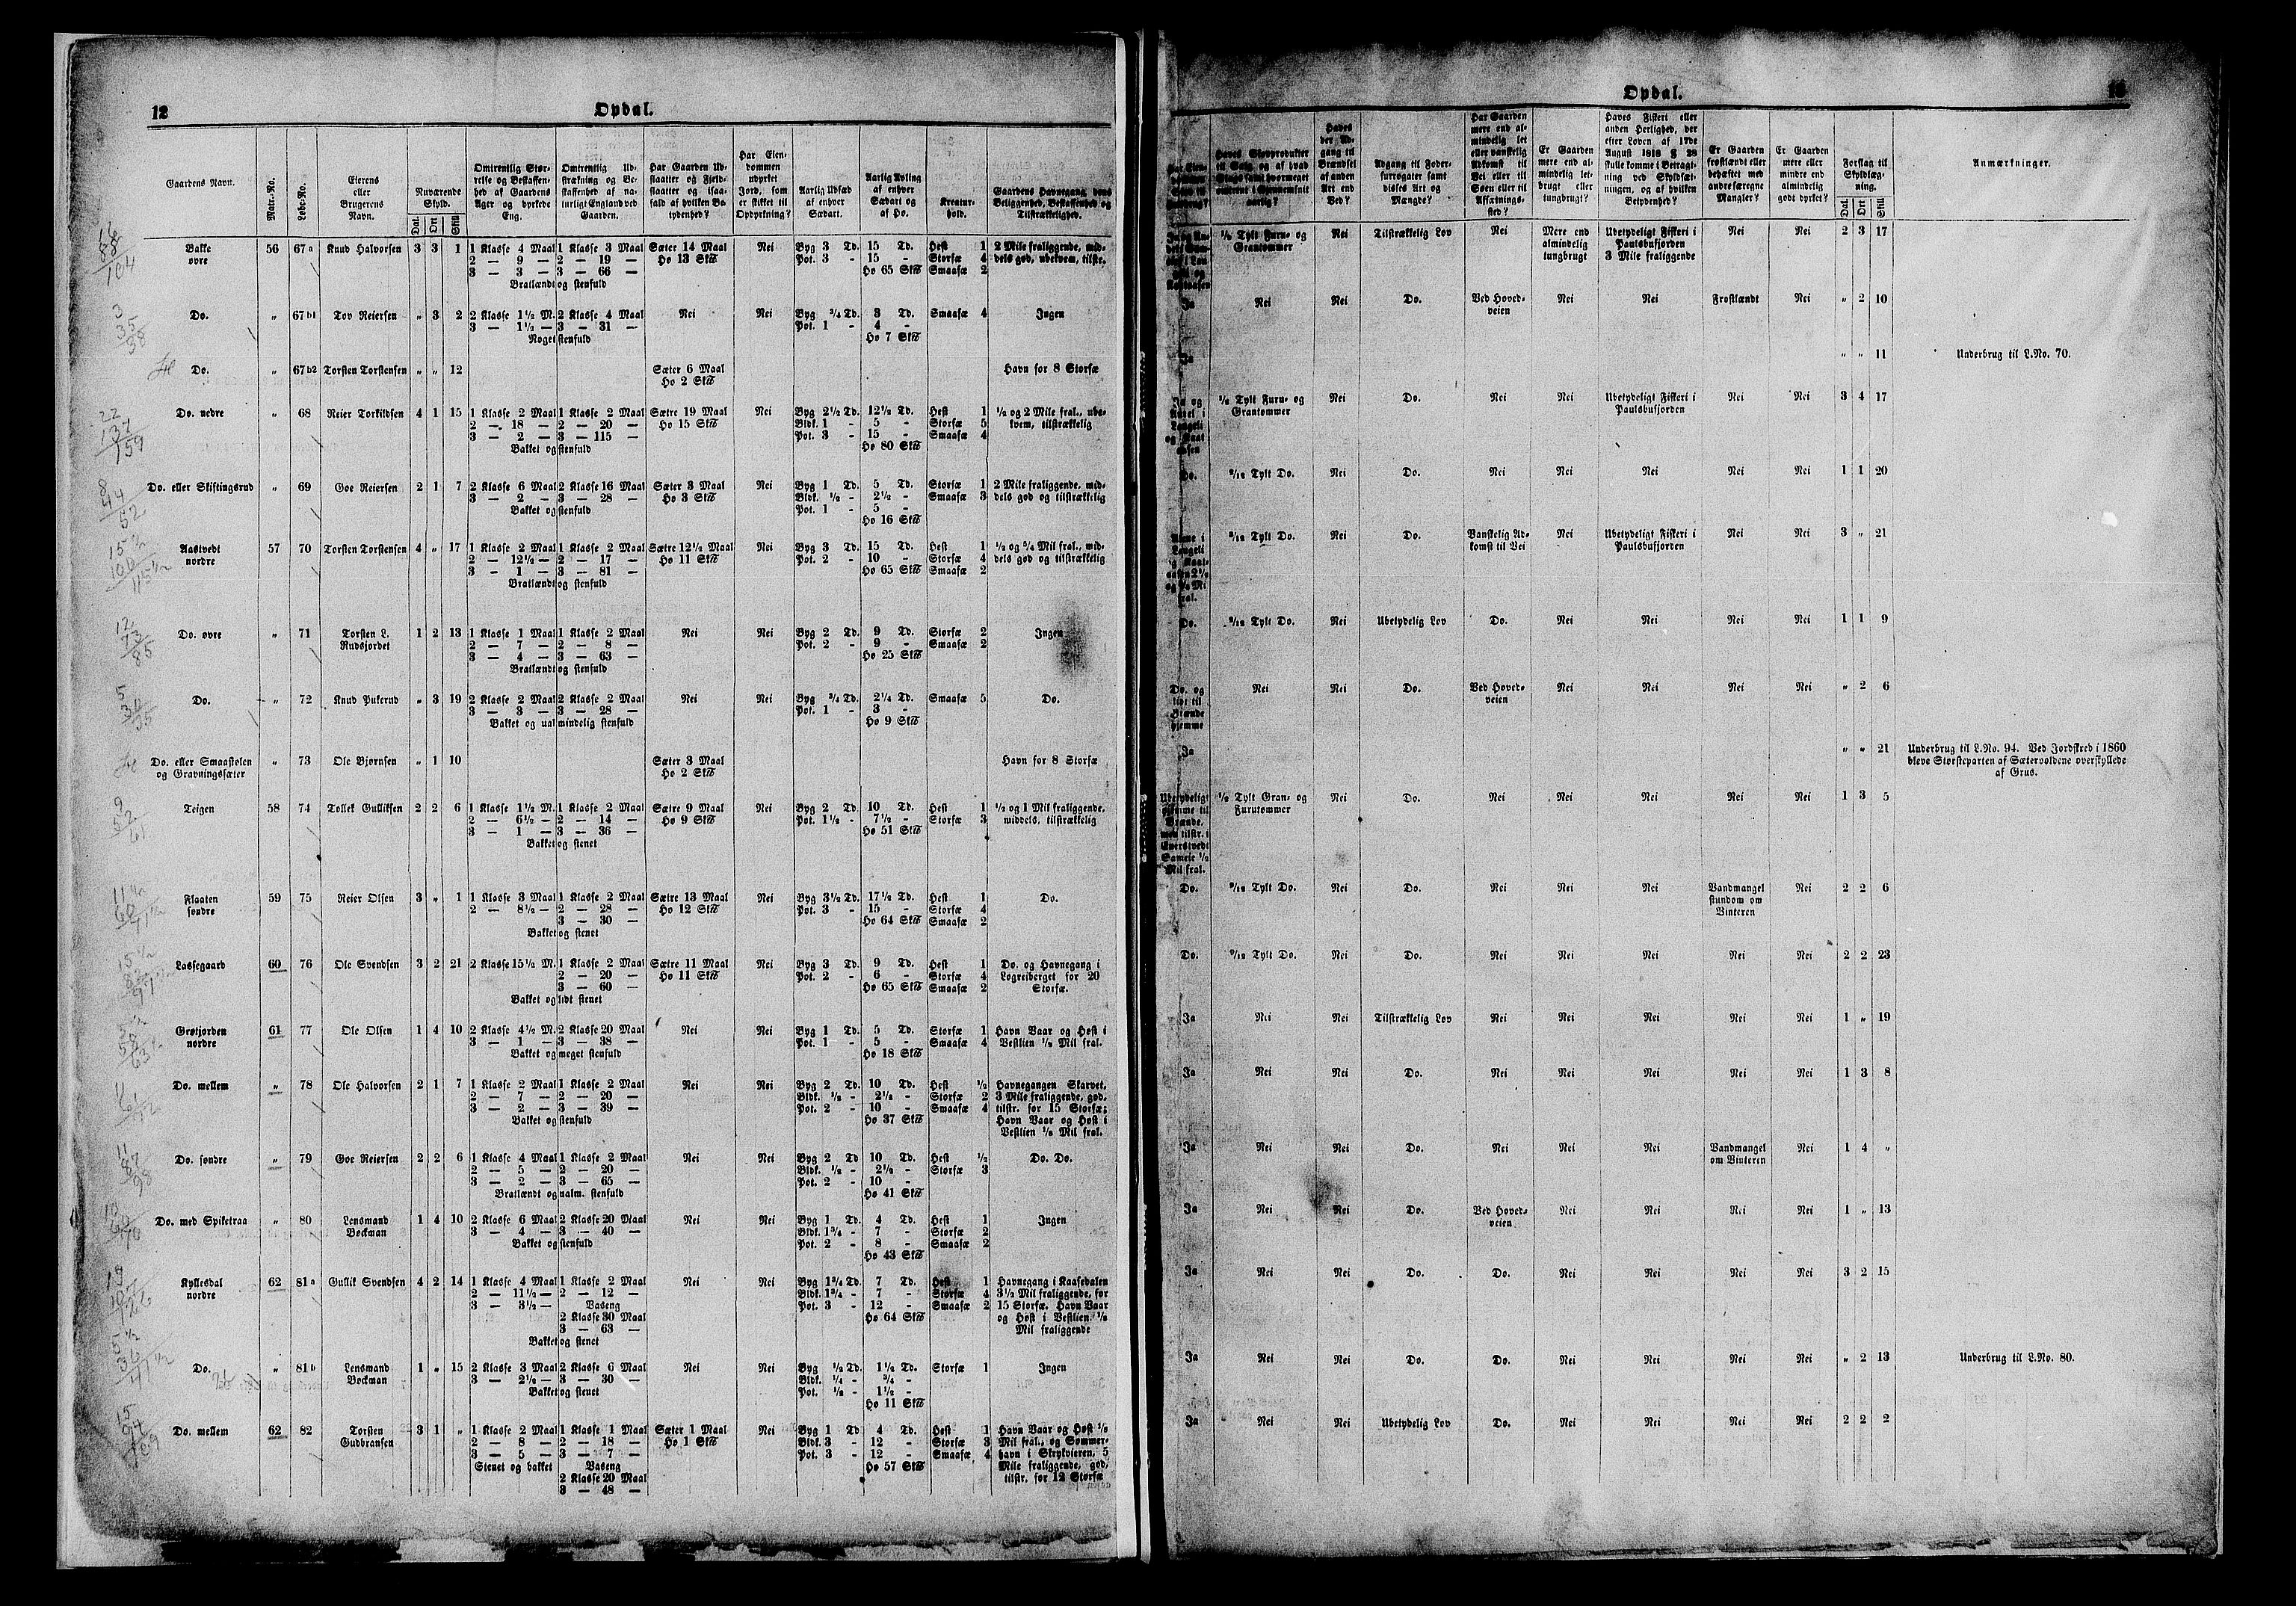 12
Opdal.
Gaardens Navn.
Matr.-No.
Løbe-No.
Eierens eller Brugerens Navn.
Nuværende Skyld.
Dal. Ort Skill
Omtrentlig Størrelse og Beskaffenhed af Gaardens Ager og dyrkede Eng.
Omtrentlig Udstrækning og Beskaffenhed af naturligt England ved Gaarden.
Har Gaarden Udslaatter og Fjeldslaatter og isaafald af hvilken Betydenhed?
Har Eiendommen udyrket Jord, som er skikket til Opdyrkning?
Aarlig Udsæd af enhver Sædart.
Aarlig Avling af enhver Sædart og af Hø.
Kreaturhold.
Gaardens Havnegang, dens Beliggenhed, Beskaffenhed og Tilstrækkelighed.
Bakke øvre 56 67a Knud Halvorsen 3 3 1 1 Klasse 4 Maal 1 Klasse 3 Maal Sæter 14 Maal Nei Byg 3 Td. 15 Td. Hest 1 2 Mile fraliggende, mid-
2 — 9 — 2 — 19 — Hø 13 Sk℔ Pot. 3 - 15 - Storfæ 4 dels god, ubekvem, tilstr.
3 — 3 — 3 — 66 — Hø 65 Sk℔ Smaafæ 2
Bratlændt og stenfuld
Do. „ 67b1 Tov Reiersen „ 3 2 2 Klasse 1½ M. 2 Klasse 4 Maal Nei Nei Byg ¾ Td. 3 Td. Smaafæ 4 Ingen
3 — 1½ — 3 — 31 — Pot. 1 - 4 -
Noget stenfuld Hø 7 Sk℔
Do. „ 67b2 Torsten Torstensen „ „ 12 Sæter 6 Maal Havn for 8 Storfæ
Hø 2 Sk℔
Do. nedre „ 68 Reier Torkildsen 4 1 15 1 Klasse 2 Maal 1 Klasse 2 Maal Sætre 19 Maal Nei Byg 2½ Td. 12½ Td. Hest 1 ½ og 2 Mile fral., ube-
2 — 18 — 2 — 20 — Hø 15 Sk℔ Bldk. 1 - 5 - Storfæ 5 kvem, tilstrækkelig
3 — 2 — 3 — 115 — Pot. 3 - 15 - Smaafæ 4
Bakket og stenfuld Hø 80 Sk℔
Do. eller Skiftingsrud „ 69 Goe Reiersen 2 1 7 2 Klasse 6 Maal 2 Klasse 16 Maal Sæter 3 Maal Nei Byg 1 Td. 5 Td. Storfæ 1 2 Mile fraliggende, mid-
3 — 2 — 3 — 28 — Hø 3 Sk℔ Bldk. ½ - 2½ - Smaafæ 3 dels god og tilstrækkelig
Bakket og stenfuld Pot. 1 - 5 -
Hø 16 Sk℔
Aastvedt nordre 57 70 Torsten Torstensen 4 „ 17 1 Klasse 2 Maal 1 Klasse 2 Maal Sætre 12½ Maal Nei Byg 3 Td. 15 Td. Hest 1 ½ og 5/4 Mil fral., mid-
2 — 12½ — 2 — 17 — Hø 11 Sk℔ Pot. 2 - 10 - Storfæ 4 dels god og tilstrækkelig
3 - 1 — 3 — 81 — Hø 65 Sk℔ Smaafæ 2
Bratlændt og stenfuld
Do. øvre „ 71 Torsten L. Rudsjordet 1 2 13 1 Klasse 1 Maal 1 Klasse 2 Maal Nei Nei Byg 2 Td. 9 Td. Storfæ 2 Ingen
2 — 7 — 2 — 8 — Pot. 2 - 9 - Smaafæ 2
3 — 4 — 3 — 63 — Hø 25 Sk℔
Bratlændt og stenfuld
Do. „ 72 Knud Pukerud „ 3 19 2 Klasse 2 Maal 2 Klasse 2 Maal Nei Nei Byg ¾ Td. 2¼ Td. Smaafæ 5 Do.
3 — 3 — 3 — 28 — Pot. 1 - 3 -
Bakket og ualmindelig stenfuld Hø 9 Sk℔
Do. eller Smaastølen og Gravningssæter „ 73 Ole Bjørnsen „ 1 10 Sæter 3 Maal Havn for 8 Storfæ
Hø 2 Sk℔
Teigen 58 74 Tollek Gulliksen 2 2 6 1 Klasse 1½ M. 1 Klasse 2 Maal Sætre 9 Maal Nei Byg 2 Td. 10 Td. Hest 1 ½ og 1 Mil fraliggende,
2 — 6½ — 2 — 14 — Hø 9 Sk℔ Pot. 1½ - 7½ - Storfæ 3 middels, tilstrækkelig
3 — 1 — 3 — 36 — Hø 51 Sk℔
Bakket og stenet
Flaaten søndre 59 75 Reier Olsen 3 „ 1 1 Klasse 3 Maal 1 Klasse 2 Maal Sætre 13 Maal Nei Byg 3½ Td. 17½ Td. Hest 1 Do.
2 — 8½ — 2 — 28 — Hø 12 Sk℔ Pot. 3 - 15 - Storfæ 4
3 — 30 — Hø 64 Sk℔ Smaafæ 2
Bakket og stenet
Lassegaard 60 76 Ole Svendsen 3 2 21 2 Klasse 15½ M. 1 Klasse 2 Maal Sætre 11 Maal Nei Byg 3 Td. 9 Td. Hest 1 Do. og Havnegang i
2 — 20 — Hø 11 Sk℔ Pot. 2 - 6 - Storfæ 4 Logreiberget for 20
3 — 60 — Hø 65 Sk℔ Smaafæ 2 Storfæ.
Bakket og lidt stenet
Grøtjorden nordre 61 77 Ole Olsen 1 4 10 2 Klasse 4½ M. 2 Klasse 20 Maal Nei Nei Byg 1 Td. 5 Td. Storfæ 1 Havn Vaar og Høst i
3 — 1 — 3 — 38 — Pot. 1 - 5 - Smaafæ 4 Vestlien ⅛ Mil fral.
Bakket og meget stenfuld Hø 18 Sk℔
Do. mellem „ 78 Ole Halvorsen 2 1 7 1 Klasse 2 Maal 1 Klasse 2 Maal Nei Nei Byg 2 Td. 10 Td. Hest ½ Havnegangen Skarvet,
2 — 7 — 2 — 20 — Bldk. ½ - 2½ - Storfæ 2 3 Mile fraliggende, god,
3 — 2 — 3 — 39 — Pot. 2 - 10 - Smaafæ 4 tilstr. for 15 Storfæ;
Bakket og stenfuld Hø 37 Sk℔ Havn Vaar og Høst i
Vestlien ⅛ Mil fral.
Do. søndre „ 79 Goe Reiersen 2 2 6 1 Klasse 4 Maal 1 Klasse 2 Maal Nei Nei Byg 2 Td 10 Td. Hest ½ Do. Do.
2 — 5 — 2 — 20 — Bldk. ½ - 2½ - Storfæ 3
3 — 2 — 3 — 65 — Pot. 2 - 10 -
Bratlændt og ualm. stenfuld Hø 41 Sk℔
Do. med Spiketraa „ 80 Lensmand Bøckman 1 4 10 2 Klasse 6 Maal 2 Klasse 20 Maal Nei Nei Byg 1 Td. 4 Td. Hest 1 Ingen
3 — 4 — 3 — 40 — Bldk. 1¾ - 7 - Storfæ 2
Bakket og stenfuld Pot. 2 - 8 - Smaafæ 2
Hø 43 Sk℔
Kyllesdal nordre 62 81a Gullik Svendsen 4 2 14 1 Klasse 4 Maal 1 Klasse 2 Maal Nei Nei Byg 1¾ Td. 7 Td. Hest 1 Havnegang i Kaasedalen
2 — 11½ — 2 — 12 — Bldk. 1¾ - 7 - Storfæ 4 3½ Mil fraliggende, for
3 — 3½ — Vaseng Pot. 3 - 12 - Smaafæ 2 15 Storfæ. Havn Vaar
2 Klasse 30 Maal Hø 64 Sk℔ og Høst i Vestlien ⅛
3 — 63 — Mil fraliggende
Bakket og stenet
Do. „ 81b Lensmand Bøckman 1 „ 15 2 Klasse 3 Maal 2 Klasse 6 Maal Nei Nei Byg ½ Td. 1½ Td. Storfæ 1 Ingen
3 — 2½ — 3 — 30 — Bldk. ¼ - ¾ -
Bakket og stenet Pot. ½ - 1½ -
Hø 11 Sk℔
Do. mellem 62 82 Torsten Gudbransen 3 1 „ 1 Klasse 2 Maal 1 Klasse 1 Maal Sæter 1 Maal Nei Byg 1 Td 4 Td. Hest 1 Havn Vaar og Høst ⅛
2 — 8 — 2 — 18 — Hø 1 Sk℔ Bldk. 3 - 12 - Storfæ 3 Mil fral., og Sommer-
3 — 5 — 3 — 7 — Pot. 3 - 12 - Smaafæ 4 havn i Skrykvieren, 5
Stenet og bakket Vaseng Hø 57 Sk℔ Mile fraliggende, god,
2 Klasse 20 Maal tilstr. for 12 Storfæ
3 — 48 —
Opdal.
Haves Skovprodukter til Salg og af hvad Slags samt hvormeget omtrent i Gjennemsnit aarlig?
Haves der Adgang til Brændsel af anden Art end Ved?
Adgang til Foder-surrogater samt disses Art og Mængde?
Har Gaarden mere end almindelig let eller vanskelig Adkomst til Vei eller til Søen eller til Afsætningssted?
Er Gaarden mere end almindelig letbrugt eller tungbrugt?
Haves Fiskeri eller anden Herlighed, der efter Loven af 17de August 1818 § 28 skulle komme i Betragtning ved Skyldsætningen, og af hvilken Betydenhed?
Er Gaarden frostlændt eller behæftet med andre særegne Mangler?
Er Gaarden mere eller mindre end almindelig godt dyrket?
Forslag til Skyldlægning.
Dal. Ort Skill
Anmærkninger.
½ Tylt Furu- og Grantømmer Nei Tilstrækkelig Løv Nei Mere end almindelig tungbrugt Ubetydeligt Fiskeri i Paulsbufjorden 3 Mile fraliggende Nei Nei 2 3 17
Ja Nei Nei Do. Ved Hovedveien Nei Nei Frostlændt Nei „ 2 10
Ja „ „ 11 Underbrug til L.No. 70.
½ Tylt Furu- og Grantømmer Nei Do. Nei Nei Ubetydeligt Fiskeri i Paulsbufjorden Nei Nei 3 4 17
Do. Tylt Do. Nei Do. Nei Nei Nei Nei Nei 1 1 20
Tylt Do. Nei Do. Vanskelig Adkomst til Vei Nei Ubetydeligt Fiskeri i Paulsbufjorden Nei Nei 3 „ 21
Do. Tylt Do. Nei Ubetydelig Løv Do. Nei Nei Nei Nei 1 1 9
Do. og lidt til Brænde hjemme Nei Nei Do. Ved Hovedveien Nei Nei Nei Nei „ 2 6
Ja „ „ 21 Underbrug til L.No. 94. Ved Jordskred i 1860
bleve Størsteparten af Sætervoldene overskyllede
af Grus.
Ubetydeligt hjemme til Brænde, men tilstr. i Sameie ½ Mil fral. ½ Tylt Gran- og Furutømmer Nei Do. Nei Nei Nei Nei Nei 1 3 5
Do. Tylt Do. Nei Do. Nei Nei Nei Vandmangel stundom om Vinteren Nei 2 2 6
Do. Tylt Do. Nei Do. Nei Nei Nei Nei Nei 2 2 23
Ja Nei Nei Tilstrækkelig Løv Nei Nei Nei Nei Nei 1 „ 19
Ja Nei Nei Do. Nei Nei Nei Nei Nei 1 3 8
Ja Nei Nei Do. Nei Nei Nei Vandmangel om Vinteren Nei 1 4 „
Ja Nei Nei Do. Ved Hovedveien Nei Nei Nei Nei 1 „ 13
Ja Nei Nei Do. Do. Nei Nei Nei Nei 3 2 15
Ja Nei Nei Do. Do. Nei Nei Nei Nei „ 2 13 Underbrug til L.No. 80.
Ja Nei Nei Ubetydelig Løv Do. Nei Nei Nei Nei 2 2 2